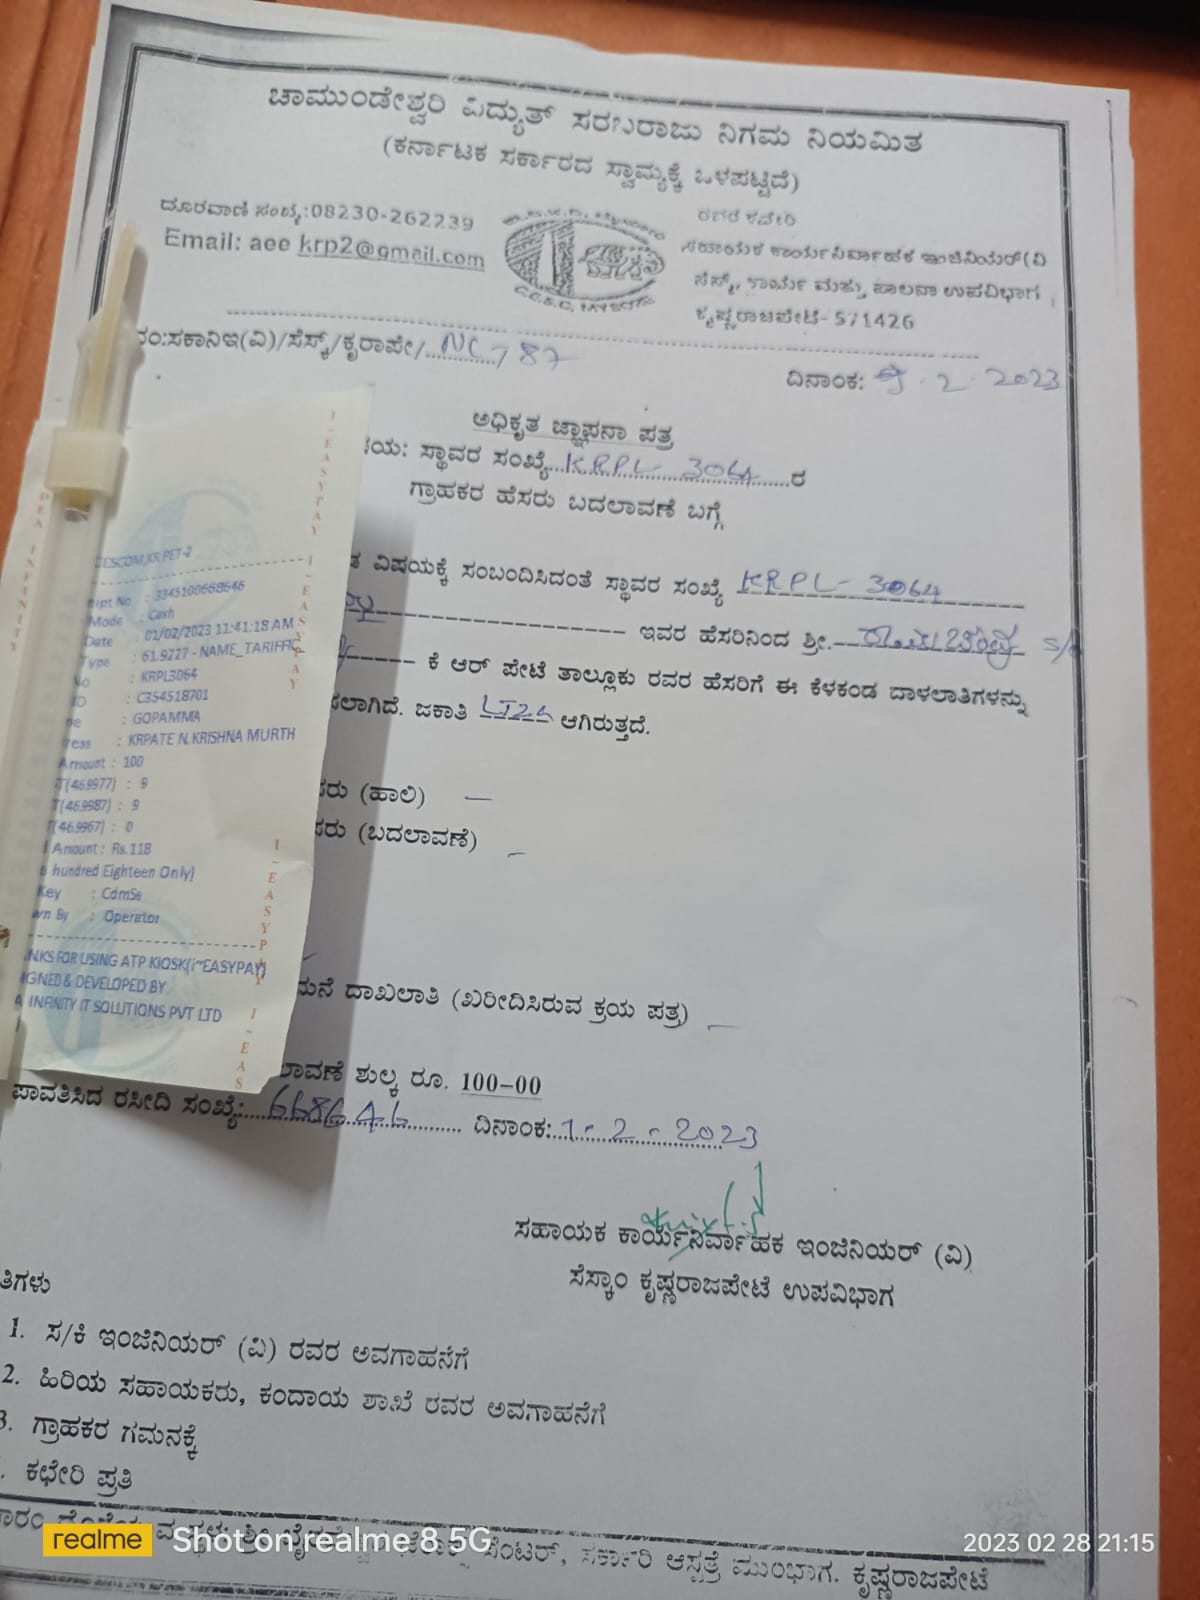 ಚಾಮುಂಡೇಶ್ವರಿ ವಿದ್ಯುತ್ ಸರಬರಾಜು ನಿಗಮ ನಿಯಮಿತ
(ಕರ್ನಾಟಕ ಸರ್ಕಾರದ ಸ್ವಾಮ್ಯಕ್ಕೆ ಒಳಪಟ್ಟಿದೆ)
ದೂರವಾಣಿ ಸಂಖ್ಯೆ:08230-262239
Email: aee krp2@gmail.com
ಸಹಾಯಕ ಕಾರ್ಯನಿರ್ವಾಹಕ ಇಂಜಿನಿಯರ್(ವಿ
ಸೆಸ್ಕ್, ಕಾರ್ಯ ಮತ್ತು ಪಾಲನಾ ಉಪವಿಭಾಗ
ಕೃಷ್ಣರಾಜಪೇಟೆ-571426
ನಂ:ಸಕಾನಿಇ(ವಿ)/ಸೆಸ್ಕ್/ಕೃರಾಪೇ/ NC / 87
ದಿನಾಂಕ: 9.2.2023
ಅಧಿಕೃತ ಜ್ಞಾಪನಾ ಪತ್ರ
ಯ: ಸ್ಥಾವರ ಸಂಖ್ಯೆ KRPL- 3064 ರ
ಗ್ರಾಹಕರ ಹೆಸರು ಬದಲಾವಣೆ ಬಗ್ಗೆ
ವಿಷಯಕ್ಕೆ ಸಂಬಂದಿಸಿದಂತೆ ಸ್ಥಾವರ ಸಂಖ್ಯೆ KRPL- 3064
ಇವರ ಹೆಸರಿನಿಂದ ಶ್ರೀ. ರಾಮಚಂದ್ರ S/
ಕೆ ಆರ್ ಪೇಟೆ ತಾಲ್ಲೂಕು ರವರ ಹೆಸರಿಗೆ ಈ ಕೆಳಕಂಡ ದಾಳಲಾತಿಗಳನ್ನು
ಸಲಾಗಿದೆ. ಜಕಾತಿ ಆಗಿರುತ್ತದೆ.
ಸರು (ಹಾಲಿ)
ಸರು (ಬದಲಾವಣೆ)
ಮನೆ ದಾಖಲಾತಿ (ಖರೀದಿಸಿರುವ ಕ್ರಯ ಪತ್ರ)
ಲಾವಣೆ ಶುಲ್ಕ ರೂ. 100-00
ಪಾವತಿಸಿದ ರಸೀದಿ ಸಂಖ್ಯೆ: 668646 ದಿನಾಂಕ: 1-2-2023
ಸಹಾಯಕ ಕಾರ್ಯನಿರ್ವಾಹಕ ಇಂಜಿನಿಯರ್ (ವಿ)
ಸೆಸ್ಕಾಂ ಕೃಷ್ಣರಾಜಪೇಟೆ ಉಪವಿಭಾಗ
ತಿಗಳು
1. ಸ/ಕಿ ಇಂಜಿನಿಯರ್ (ವಿ) ರವರ ಅವಗಾಹನೆಗೆ
2. ಹಿರಿಯ ಸಹಾಯಕರು, ಕಂದಾಯ ಶಾಖೆ ರವರ ಅವಗಾಹನೆಗೆ
3. ಗ್ರಾಹಕರ ಗಮನಕ್ಕೆ
. ಕಛೇರಿ ಪ್ರತಿ
ಸೆಂಟರ್, ಸರ್ಕಾರಿ ಆಸ್ಪತ್ರೆ ಮುಂಭಾಗ. ಕೃಷ್ಣರಾಜಪೇಟೆ
CESCOM,KR PET-2
ipt No : 3345100668646
Mode : Cash
Date : 01/02/2023 11:41:18 AM
Type : 61.9227 - NAME_TARIFFIC
No : KRPL3064
ID : C354518701
me : GOPAMMA
ress : KRPATE N.KRISHNA MURTH
Amount : 100
T(46.9977) : 9
T(46.9987) : 9
T(46.9967) : 0
l Amount : Rs.118
e hundred Eighteen Only)
Key : CdmSe
wn By : Operator
NKS FOR USING ATP KIOSK(i~EASYPAY)
IGNED & DEVELOPED BY
A INFINITY IT SOLUTIONS PVT LTD
I~EASYPAY I~EASYPAY
I~EASYPAY I~EAS
DEA INFINITY
realme Shot on realme 8 5G
2023 02 28 21:15